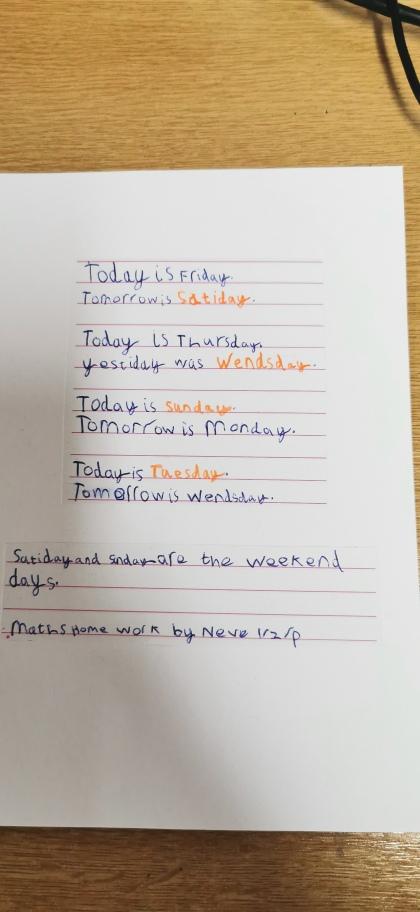 Today is Friday.
Tomorrow is Satiday.
Today is Thursday.
yestiday was Wendsday.
Today is sunday.
Tomorrow is Monday.
Today is Tuesday.
Tomorrow is Wendsday.
Satiday and snday are the weekend
days.
Maths Home work by Neve